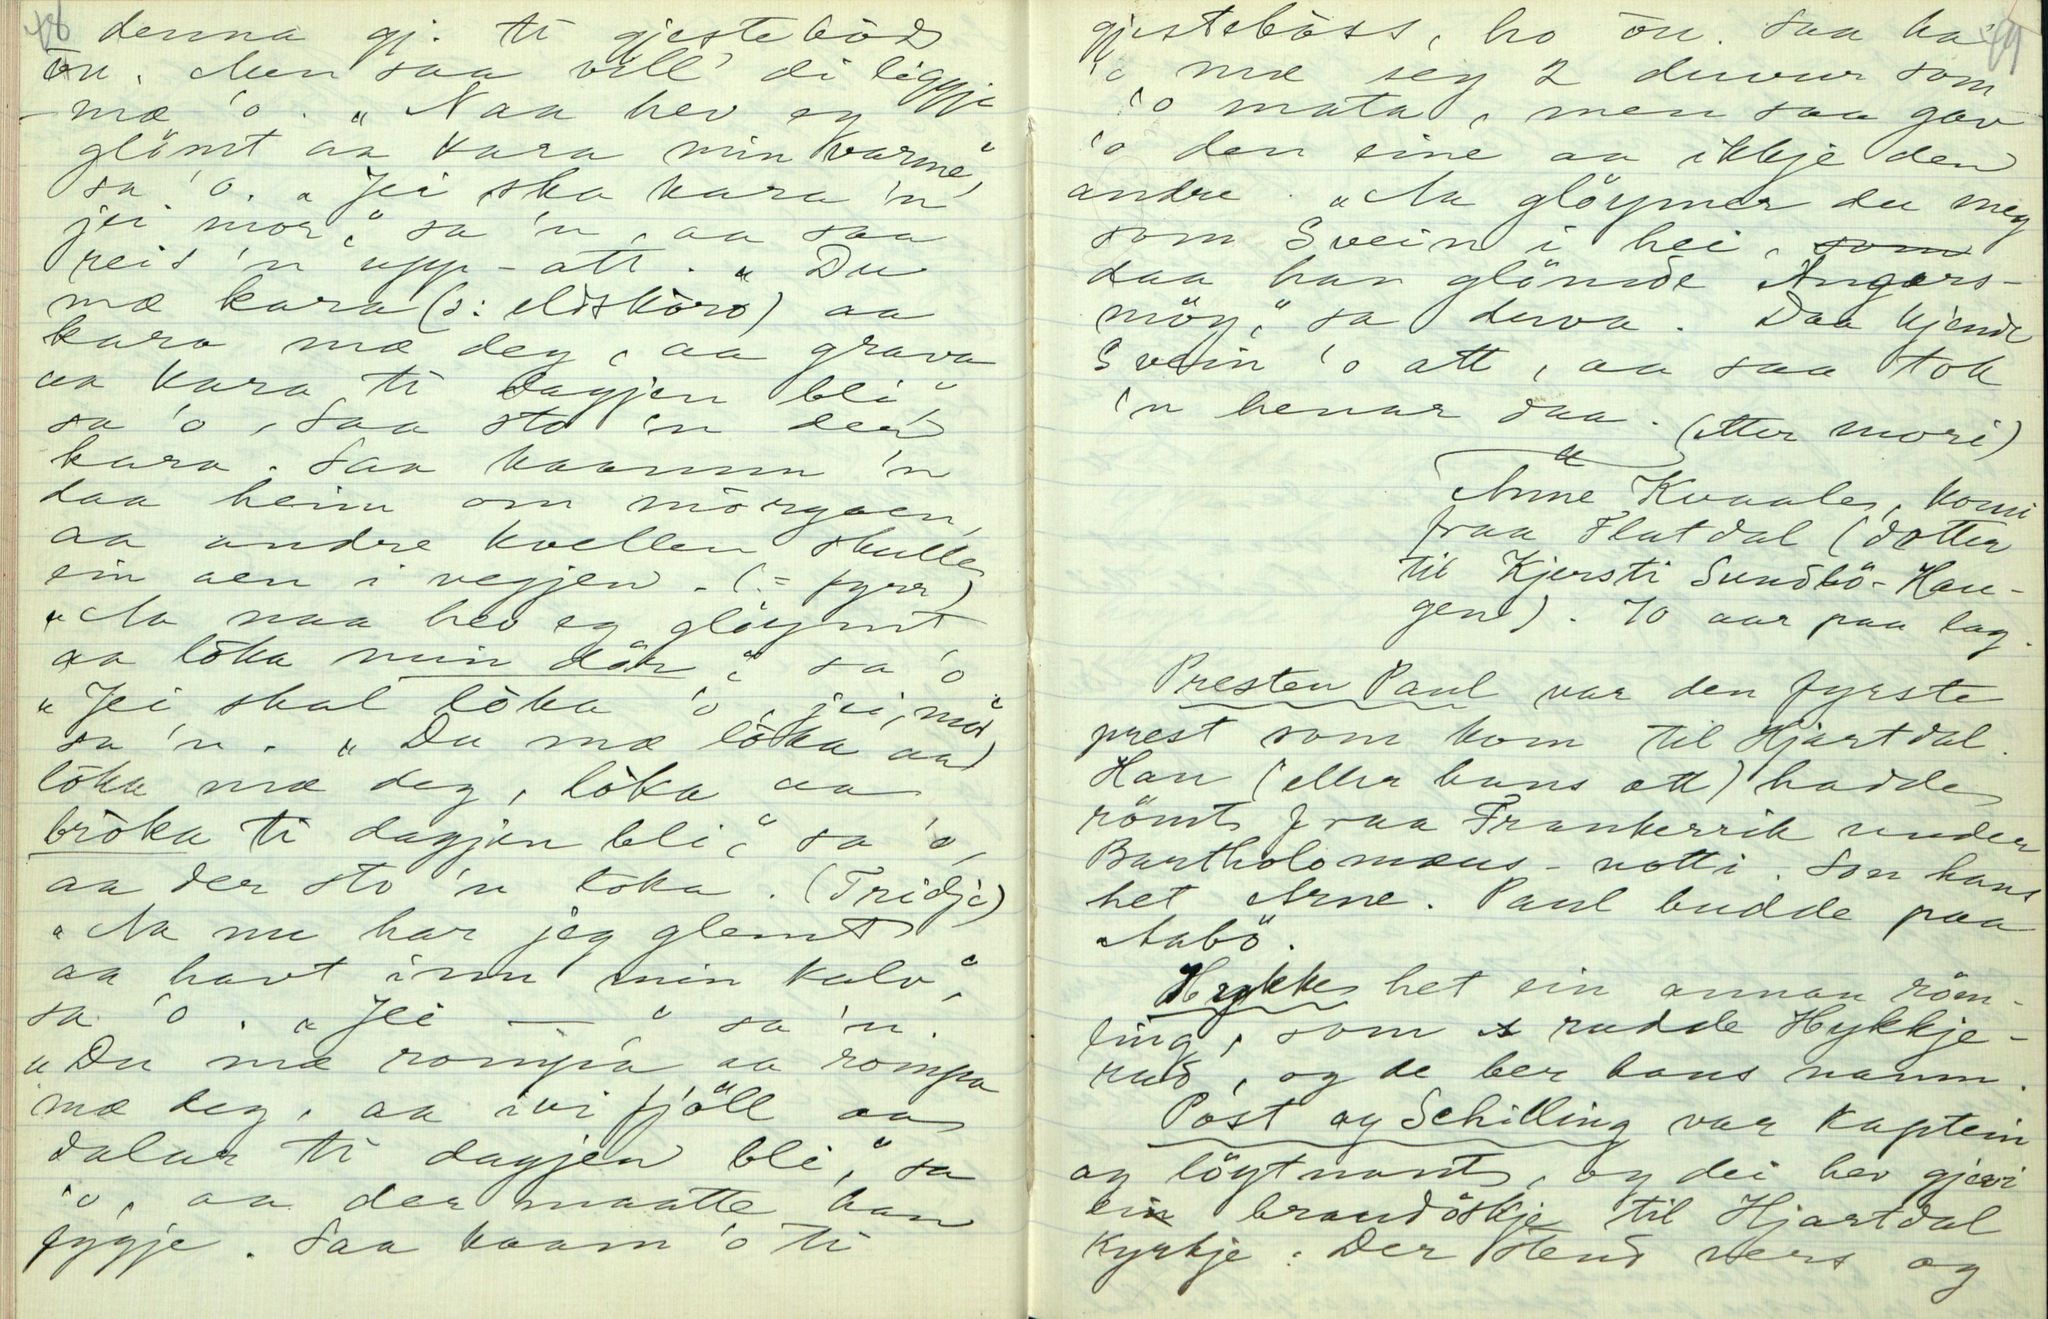 48
denna gj. ti gjesteböd
ōn. Men saa vill' di liggje
mæ 'o. „Naa hev eg
glömt aa kara min varme“,
sa 'o. „Jei ska kara 'n
jei mor,“ sa 'n, aa saa
reis 'n upp-att. „Du
mæ kara (ɔ: eldskōrō) aa
kara mæ deg, aa grava
aa kara ti dagjen bli“
sa 'o, saa sto 'n der
kara. Saa kaamm 'n
daa heim om mörgaen,
aa andre kvellen skulle
ein aen i vegjen. (= fyrr)
„Aa naa hev eg glöymt
aa lōka min dör“, sa 'o
„Jei skal lōka 'o, jei, mor“
sa 'n. „Du mæ lōka aa
lōka mæ deg, lōka aa
brōka ti dagjen bli“, sa 'o,
aa der sto 'n lōka. (Tridje)
„Aa nu har jeg glemt
aa havt inn min kalv“,
sa 'o. „Jei — “ sa 'n.
„Du mæ rompa aa rompa
mæ deg, aa ivi fjöll aa
dalar ti dagjen bli“, sa
'o, aa der maatte han
fygje. Saa kaam 'o ti
49
gjestebōss, ho ōn. Saa ha
'o mæ seg 2 duvur som
'o mata, men saa gav
'o den eine aa ikkje den
andre. „Aa glöymer du meg
som Svein i hei, som
daa han glömde Angers-
möy,“ sa duva. Daa kjende
Svein 'o att, aa saa tok
'n henar daa. (etter mori)
Anne Kvaale, komi
fraa Flatdal (dotter
til Kjersti Sundbö-Hau-
gen). 70 aar paa lag.
Presten Paul var den fyrste
prest som kom til Hjartdal.
Han (eller hans ætt) hadde
römt fraa Frankerrik under
Bartholomæus-notti. Son hans
het Arne. Paul budde paa
Aabö.
Hykke het ein annan röm-
ling, som rudde Hykkje-
rud, og de ber hans namn.
Post og Schilling var kaptein
og löytnant, og dei hev gjevi
ein brandöskje til Hjartdal
Kyrkje. Der stend vers og